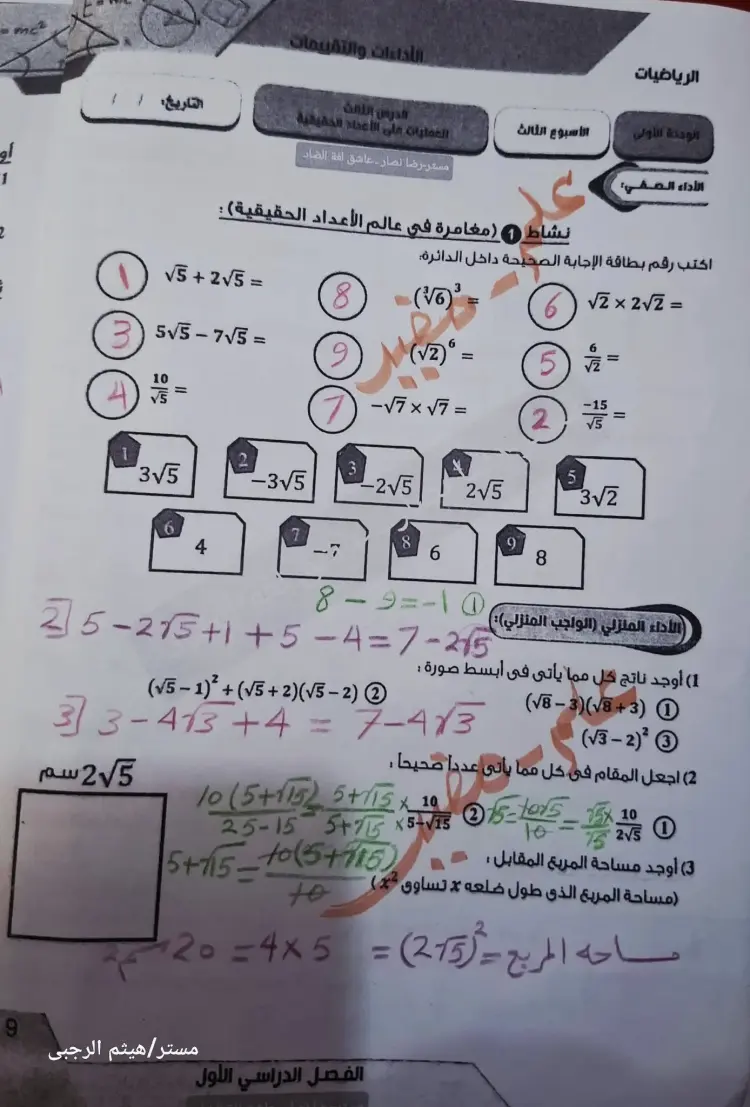 الأداءات والتقييمات
الرياضيات
الوحدة الأولى
الأسبوع الثالث
الدرس الثالث
العمليات على الأعداد الحقيقية
التاريخ: / /
مستر-رضا نصار ـ عاشق لغة الضاد
الأداء الصفي:
نشاط 1 (مغامرة في عالم الأعداد الحقيقية):
اكتب رقم بطاقة الإجابة الصحيحة داخل الدائرة:
6 √2 × 2√2 =
8 (∛6)³ =
1 √5 + 2√5 =
5 6/√2 =
9 (√2)⁶ =
3 5√5 − 7√5 =
2 −15/√5 =
7 −√7 × √7 =
4 10/√5 =
1 3√5
2 −3√5
3 −2√5
4 2√5
5 3√2
6 4
7 −7
8 6
9 8
علمي - مفيد
الأداء المنزلي (الواجب المنزلي):
① 8 − 9 = −1
2] 5 − 2√5 + 1 + 5 − 4 = 7 − 2√5
1) أوجد ناتج كل مما يأتى فى أبسط صورة:
① (√8 − 3)(√8 + 3)
② (√5 − 1)² + (√5 + 2)(√5 − 2)
③ (√3 − 2)²
3] 3 − 4√3 + 4 = 7 − 4√3
2) اجعل المقام فى كل مما يأتى عدداً صحيحاً:
① 10/2√5 × √5/√5 = 10√5/10 = √5
② 10/5−√15 × 5+√15/5+√15 = 10(5+√15)/25−15
= 10(5+√15)/10 = 5+√15
3) أوجد مساحة المربع المقابل:
(مساحة المربع الذى طول ضلعه x تساوى x²)
2√5 سم
مساحه المربع = (2√5)² = 4 × 5 = 20 سم²
علمي - مفيد
9
مستر/هيثم الرجبى
الفصل الدراسي الأول